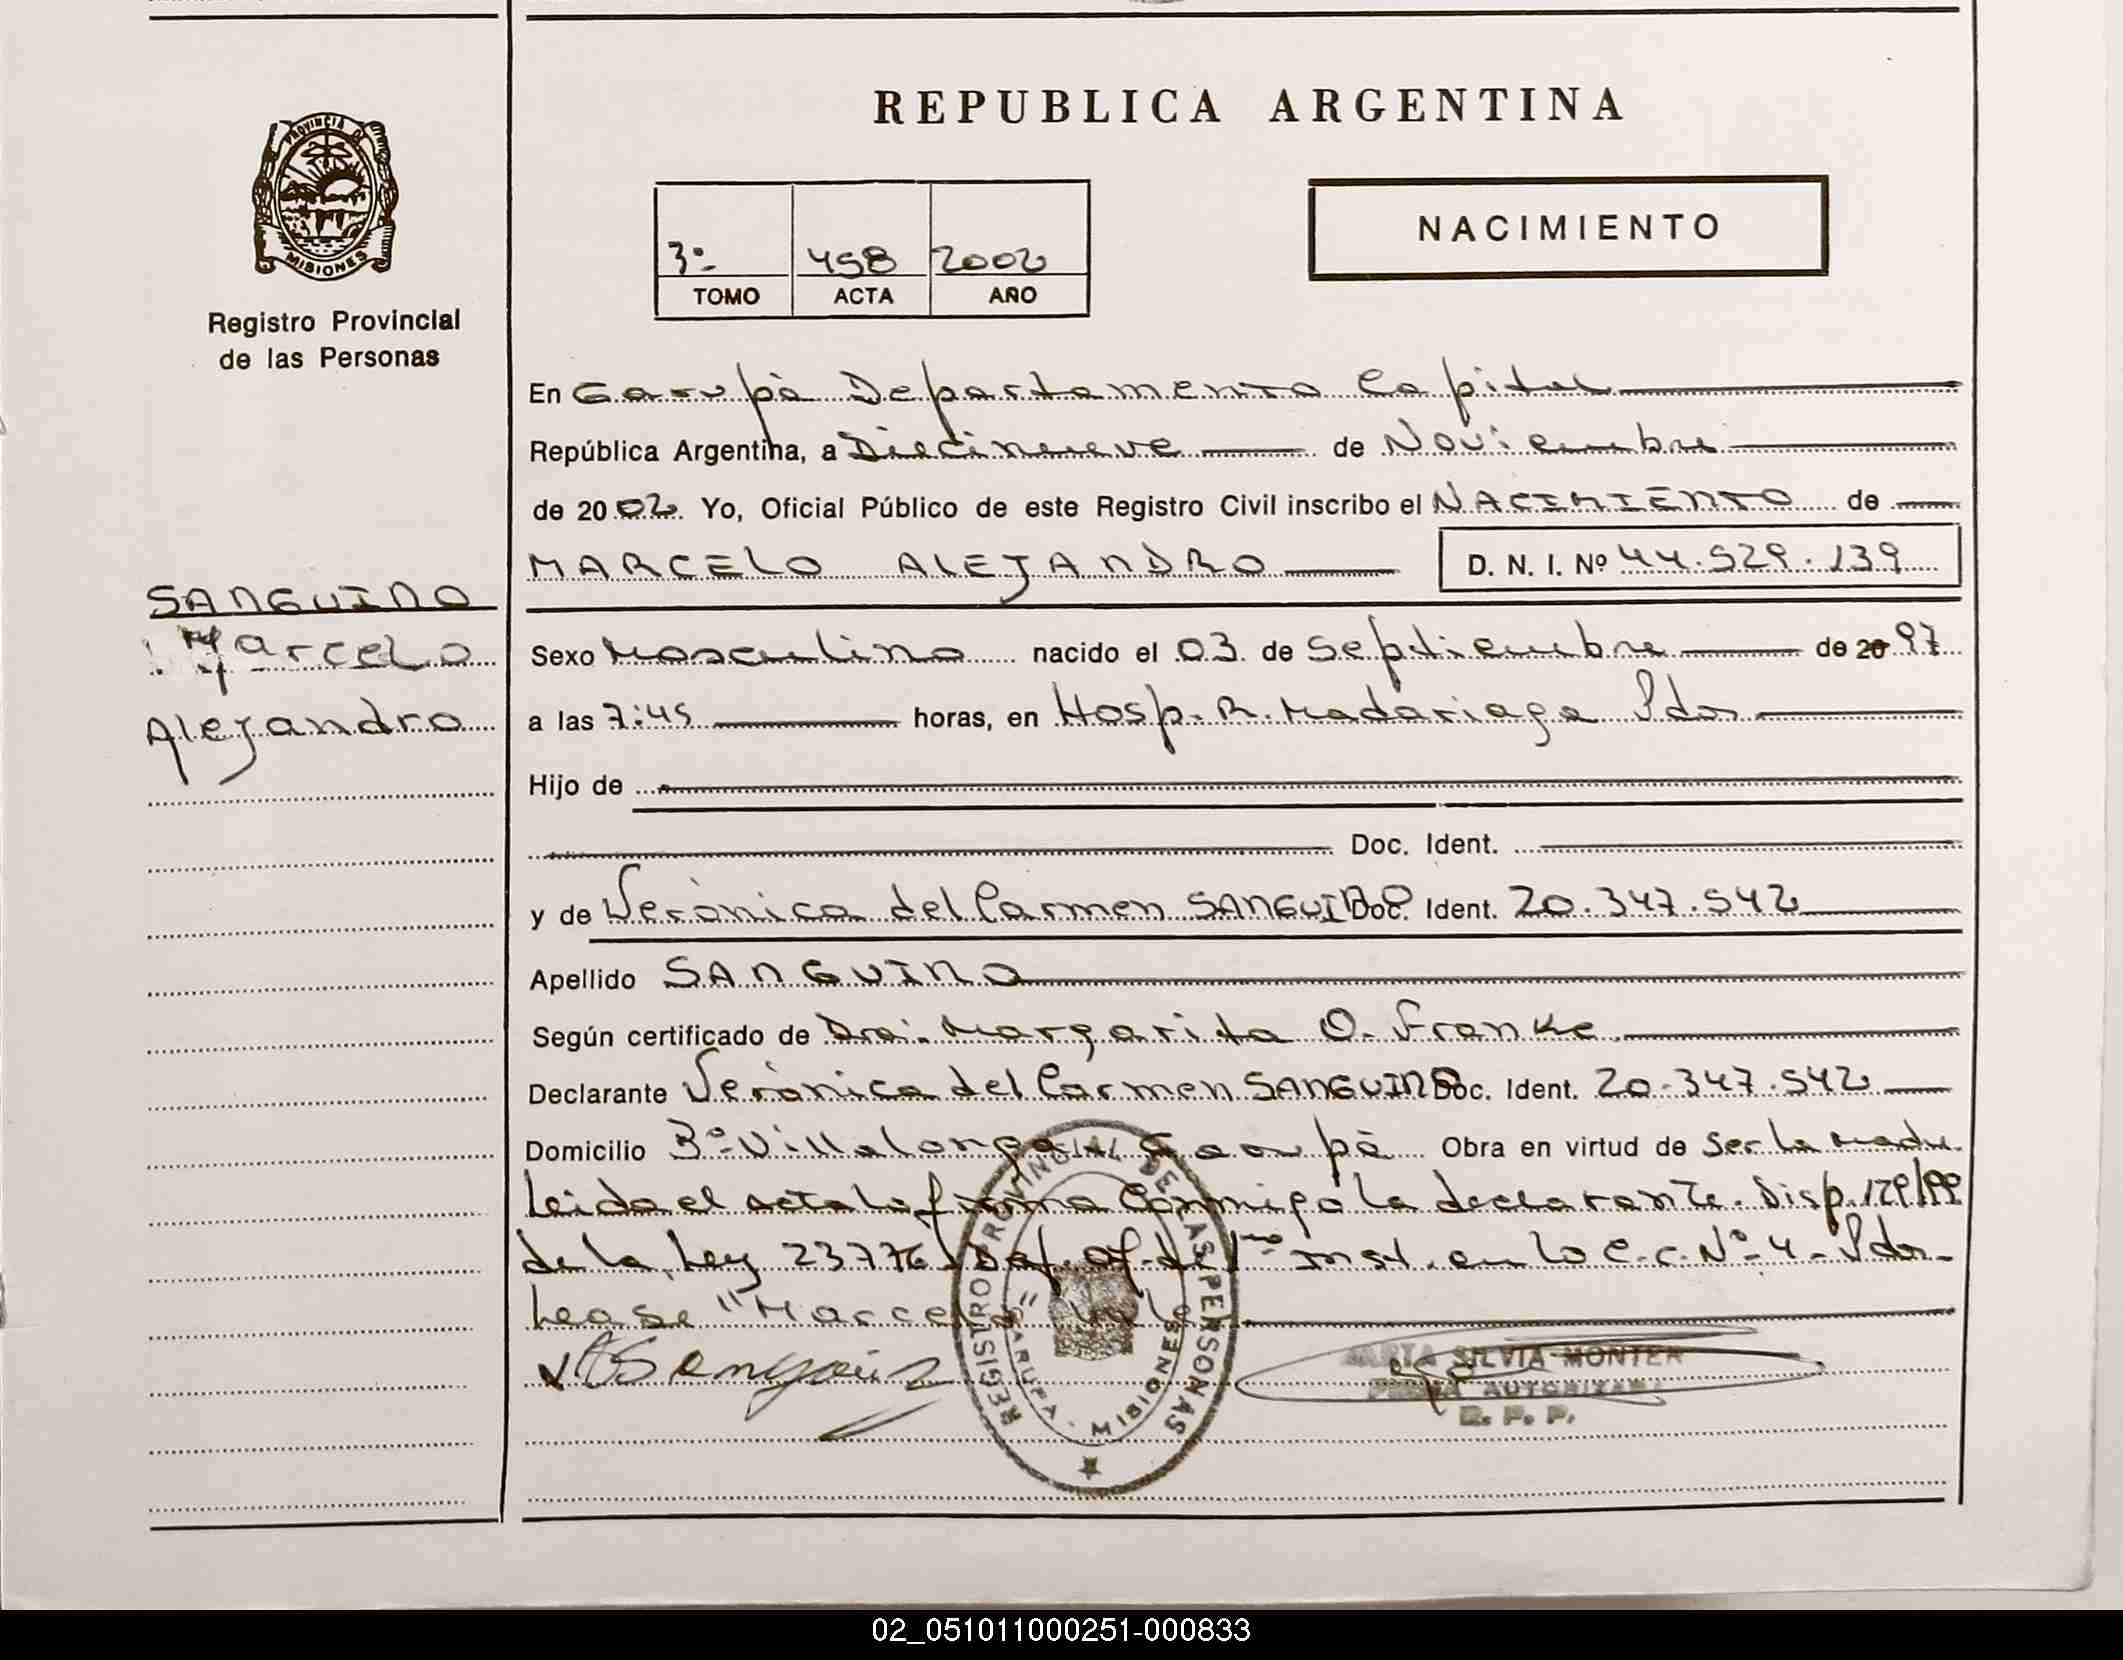 REPUBLICA ARGENTINA
PROVINCIA D
MISIONES
Registro Provincial
de las Personas
NACIMIENTO
3º 458 2002
TOMO ACTA AÑO
En Garupà Departamento Capital
República Argentina, a Diecinueve de Noviembre
de 2002. Yo, Oficial Público de este Registro Civil inscribo el NACIMIENTO de
MARCELO ALEJANDRO D. N. I. Nº 44.529.139
SANGUINO
Marcelo
Alejandro
Sexo Masculino nacido el 03 de Septiembre de 20 97
a las 7:45 horas, en Hosp. R. Madariaga Pdas
Hijo de
Doc. Ident.
y de Verònica del Carmen SANGUINO Doc. Ident. 20.347.542
Apellido SANGUINO
Según certificado de Dra. Margarita O. Franke
Declarante Verònica del Carmen SANGUINO Doc. Ident. 20.347.542
Domicilio Bº Villalonga Garupà Obra en virtud de ser la madre
Leida el acta la firma conmigo la declarante. Disp. 179/99
de la Ley 23776 Def. of. de 1ro Inst. en lo C. C. Nº 4 - Pdas-
Lease "Marcelo" vale
REGISTRO PROVINCIAL DE LAS PERSONAS
GARUPA - MISIONES
MARTA SILVIA MONTER
FIRMA AUTORIZADA
R. P. P.
02_051011000251-000833